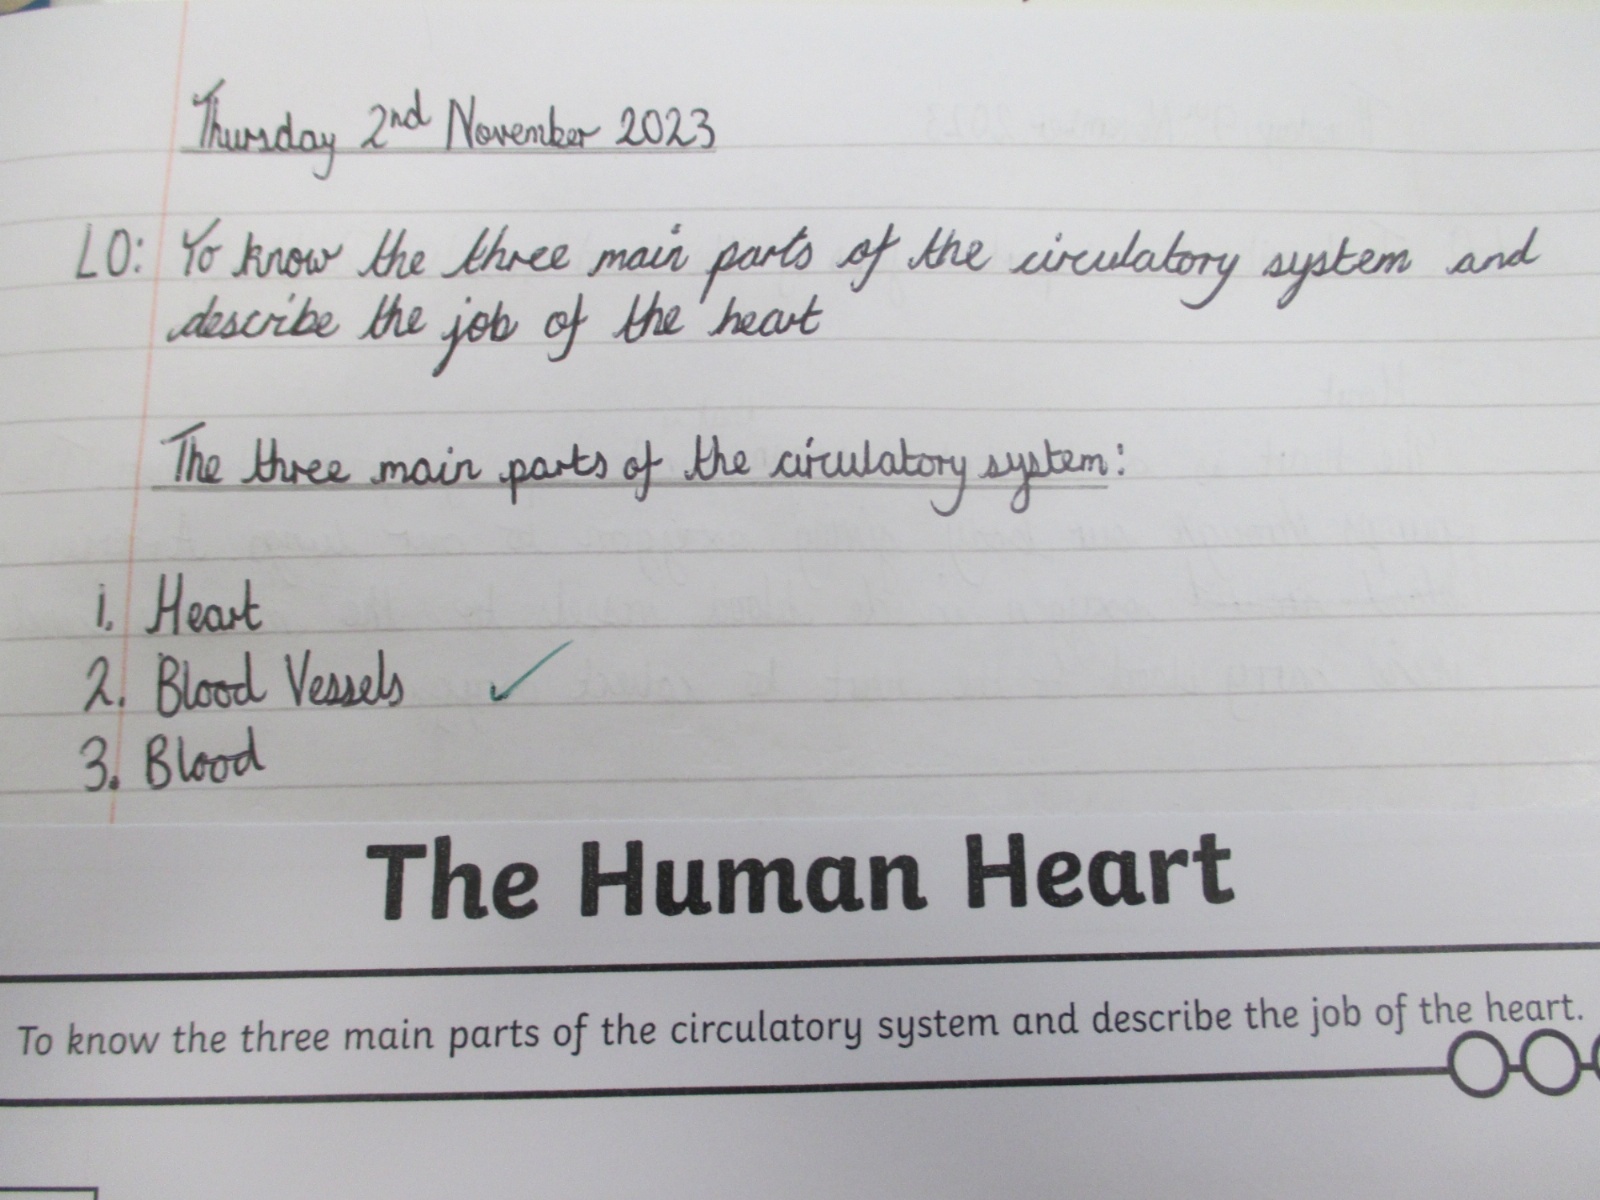 Thursday 2nd November 2023
LO: To know the three main parts of the circulatory system and
describe the job of the heart
The three main parts of the circulatory system:
1. Heart
2. Blood Vessels
3. Blood
The Human Heart
To know the three main parts of the circulatory system and describe the job of the heart.